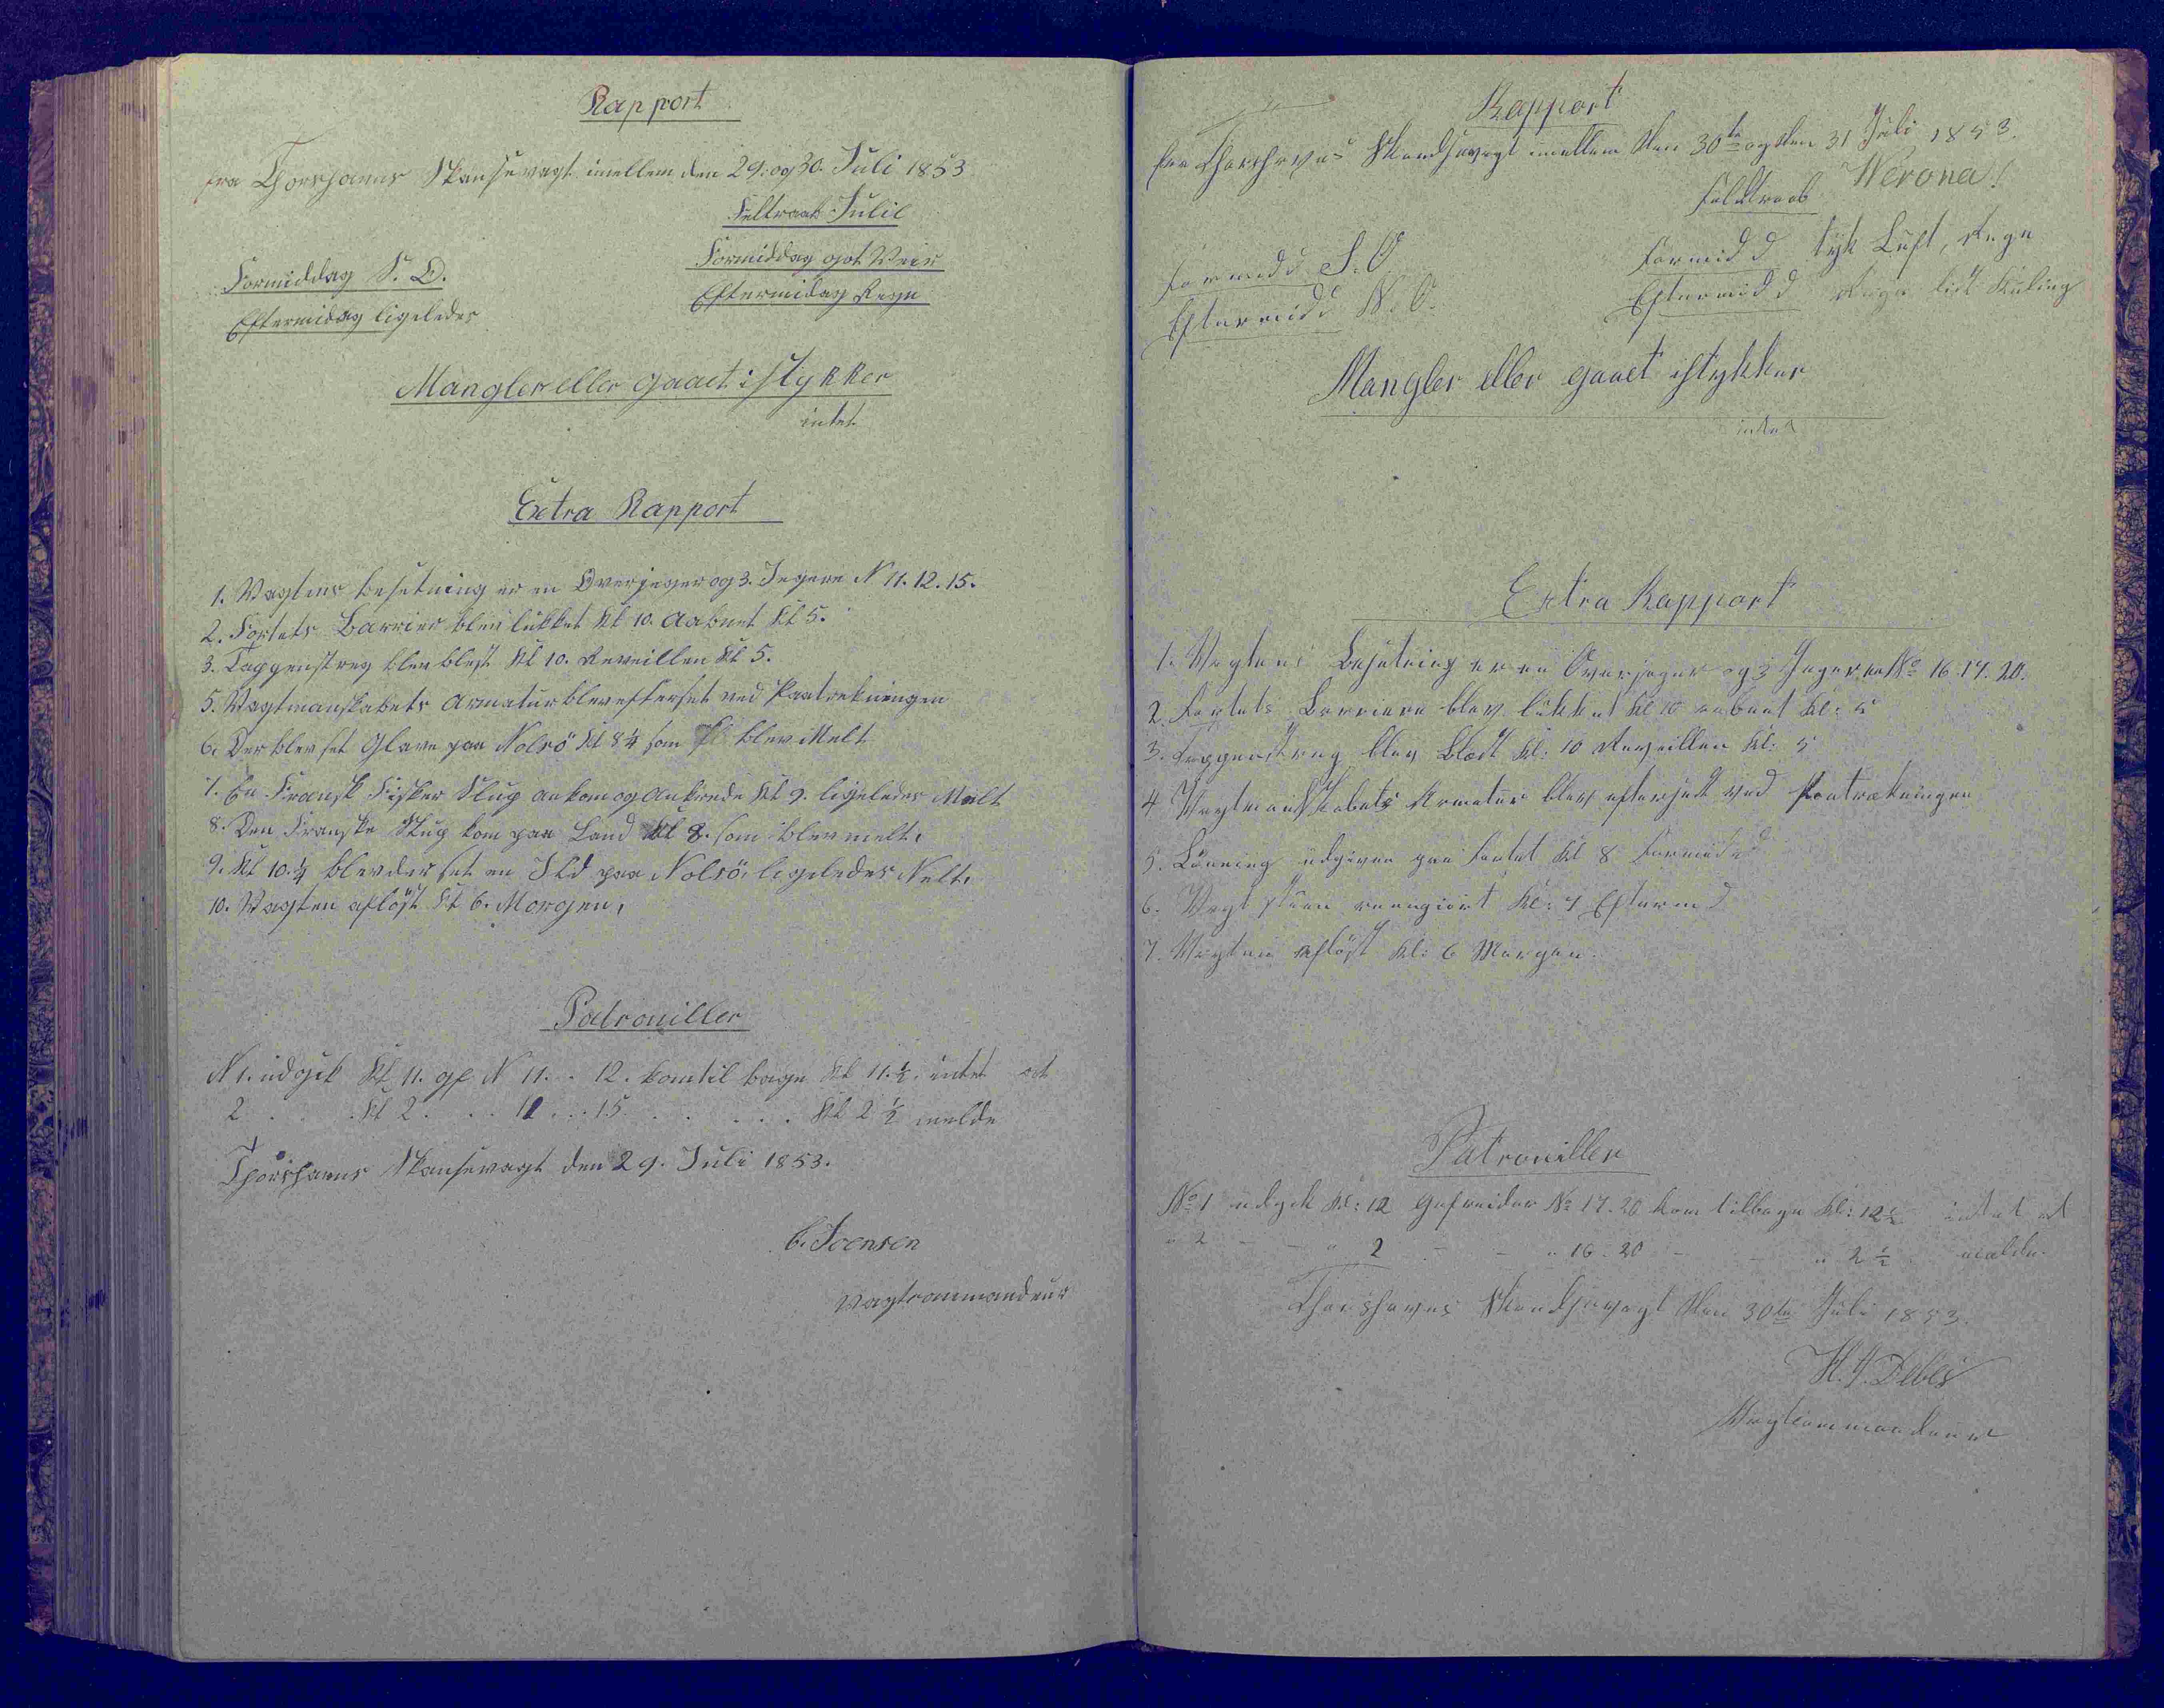 Rapport
fra Thorshavns Skansevagt imellem den 29. og 30. Juli 1853
Feltraab Julie
Formiddag S. O.
Formiddag got Veir
Eftermidag ligeledes
Eftermidag Regn
Mangler eller gaaet i stykker
intet
Extra Rapport
1. Vagtens besetning er en Overjeger og 3. Jegere N 11. 12. 15.
2. Fortets Barrier blev lukket Kl 10. Aabnet Kl 5.
3. Tappenstreg blev blest Kl 10. Reveillen Kl 5.
5. Vagtmanskabets Armatur blev efterset ved Paatrekningen
6. Der blev set Glave paa Nolsö Kl 8 1/4 som blev Melt
7. En Fransk Fisker Slup ankom og Ankrede Kl 9. ligeledes Melt
8. Den Franske Slup kom paa Land Kl 8. som blev melt.
9. Kl 10. 1/4 blev der set en Ild paa Nolsö. ligeledes Melt.
10. Vagten aflöst Kl 6. Morgen.
Patrouiller
N 1. udgik Kl 11. gf N 11. . 12. kom til bage Kl 11. 1/2. intet at
2 . . . Kl 2. . . . 12 . . . 15 . . . . . Kl 2 1/2 melde
Thorshavns Skansevagt den 29. Juli 1853.
Joensen
Vagtcommandeur
Rapport
fra Thorshavns Skandsevagt imellem den 30te og den 31 Juli 1853.
Feldtraab Werona!
Formidd S. O
Formidd tyk Luft, Regn
Eftermidd N. O.
Eftermidd Regn lidt Kuling
Mangler eller gaaet istykker
intet
Extra Rapport
1. Vagtens Besetning er en Overjeger og 3 Jegere No 16. 17. 20.
2. Fortets Barriere blev lukket Kl 10 aabnet Kl: 5
3. Tappenstreg blev Blæst Kl: 10 Reveillen Kl: 5
4 Vagtmandskabets Armatur blev efterseet ved Paatrækningen
5. Lönning udgiven paa Fortet Kl 8 Formidd
6. Vagtstuen reengiort Kl: 7 Eftermd
7. Vagten aflöst Kl: 6 Morgen.
Patrouiller
No 1 udgik Kl: 12 Gefreider No 17. 20 kom tilbage Kl: 12 1/2 intet at
" 2 - - " 2 - - " 16 . 20 - - " 2 1/2 melde.
Thorshavns Skandsevagt den 30te Juli 1853.
Debes
Vagtcommandeur